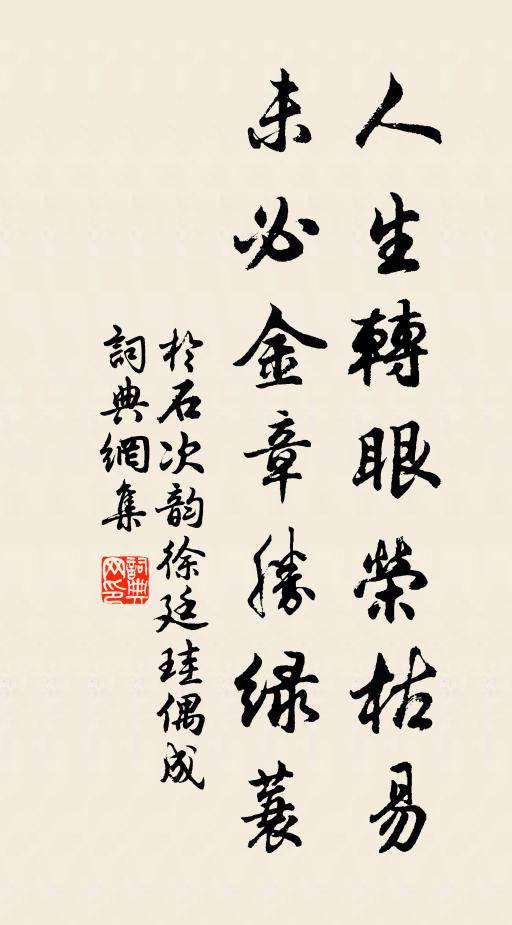 人生轉眼榮枯易
未必金章勝緑蓑
於石次韵徐廷珪偶成
詞典網集
詞典网印